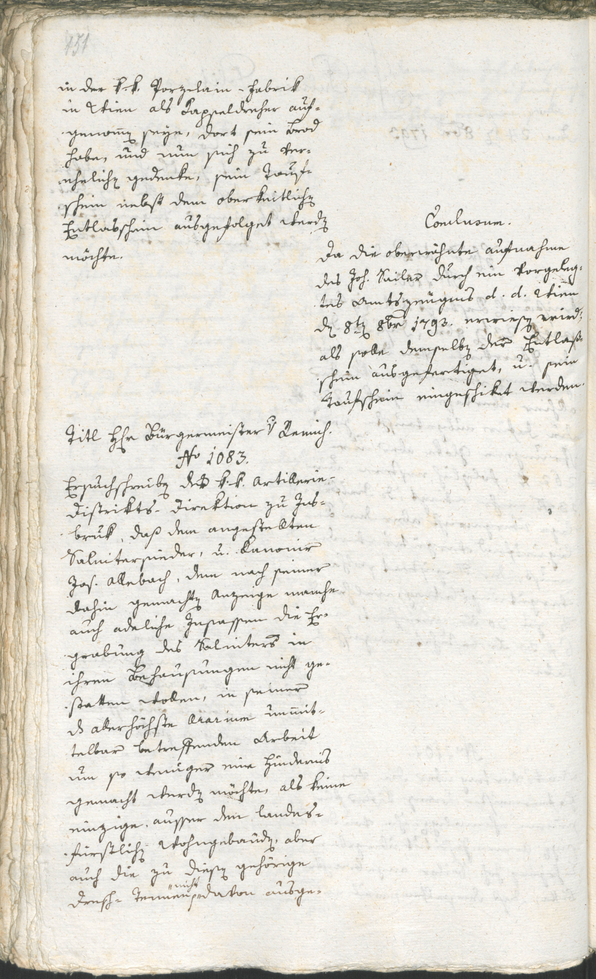 151
in der k.k. Porzelain-Fabrik
in Wien als Kapseldreher auf-
genom̅en seye, dort sein Brod
habe, und nun sich zu ver-
ehelichen gedenke, sein Tauf-
schein nebst dem oberkeitlichen
Entlasschein ausgefolget werden
möchte.
Conclusum.
Da die oberwehnte Aufnahme
des Joh. Seiler durch ein vorgeleg-
tes Amtszeugnis d. d. Wien
den 8ten 8br 1793. erwiesen wird;
als solle demselben der Entlaß-
schein ausgefertiget, u. sein
Taufschein eingeschikt werden.
Titl Hhr Bürgermeister v
No 1083.
Ersuchschreiben der k.k. Artillerie-
Distrikts-Direktion zu Ins-
bruk, daß dem angestellten
Salnitersieder, u. Kanonier
Jos. Allebach, dem nach seiner
dahin gemachten Anzeige manche
auch adeliche Insassen die Er-
grabung des Salniters in
ihren Behausungen nicht ge-
statten wollen, in seiner
das allerhöchste Ararium unmit-
telbar betreffenden Arbeit
um so weniger eine Hindernis
gemacht werden möchte, als keine
einzige ausser den landes-
fürstlichen Wohngebäuden, aber
auch die zu diesen gehörige
nicht davon ausge-